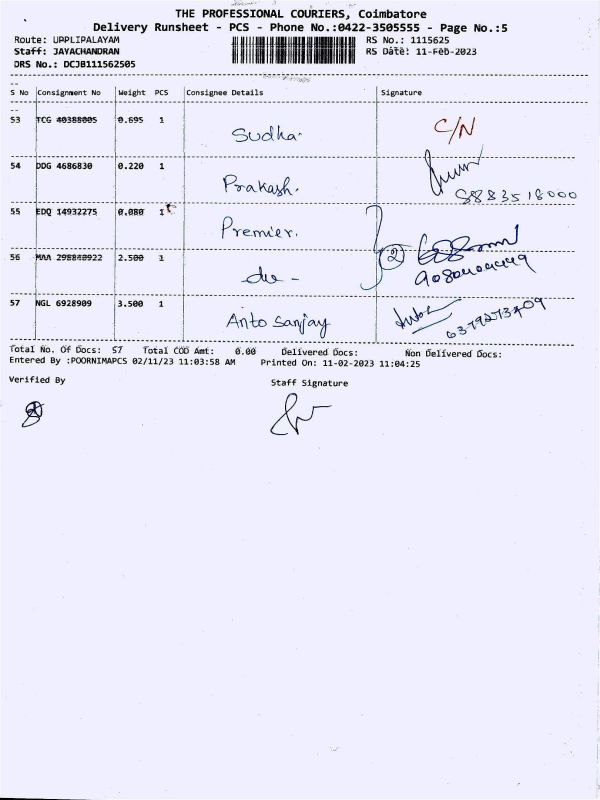 THE PROFESSIONAL COURIERS, Coimbatore
Delivery Runsheet - PCS - Phone No.:0422-3505555 - Page No.:5
Route: UPPLIPALAYAM
RS No.: 1115625
Staff: JAYACHANDRAN
RS Date: 11-Feb-2023
DRS No.: DCJB111562505
S No Consignment No Weight PCS Consignee Details Signature
53 TCG 40388005 0.695 1 Sudha. C/N
54 DDG 4686830 0.220 1 Prakash. 8883518000
55 EDQ 14932275 0.080 1 Premier.
56 MAA 298840922 2.500 1 do - 2
57 NGL 6928909 3.500 1 Anto Sanjay 6379273409
Total No. Of Docs: 57 Total COD Amt: 0.00 Delivered Docs: Non Delivered Docs:
Entered By :POORNIMAPCS 02/11/23 11:03:58 AM Printed On: 11-02-2023 11:04:25
Verified By Staff Signature